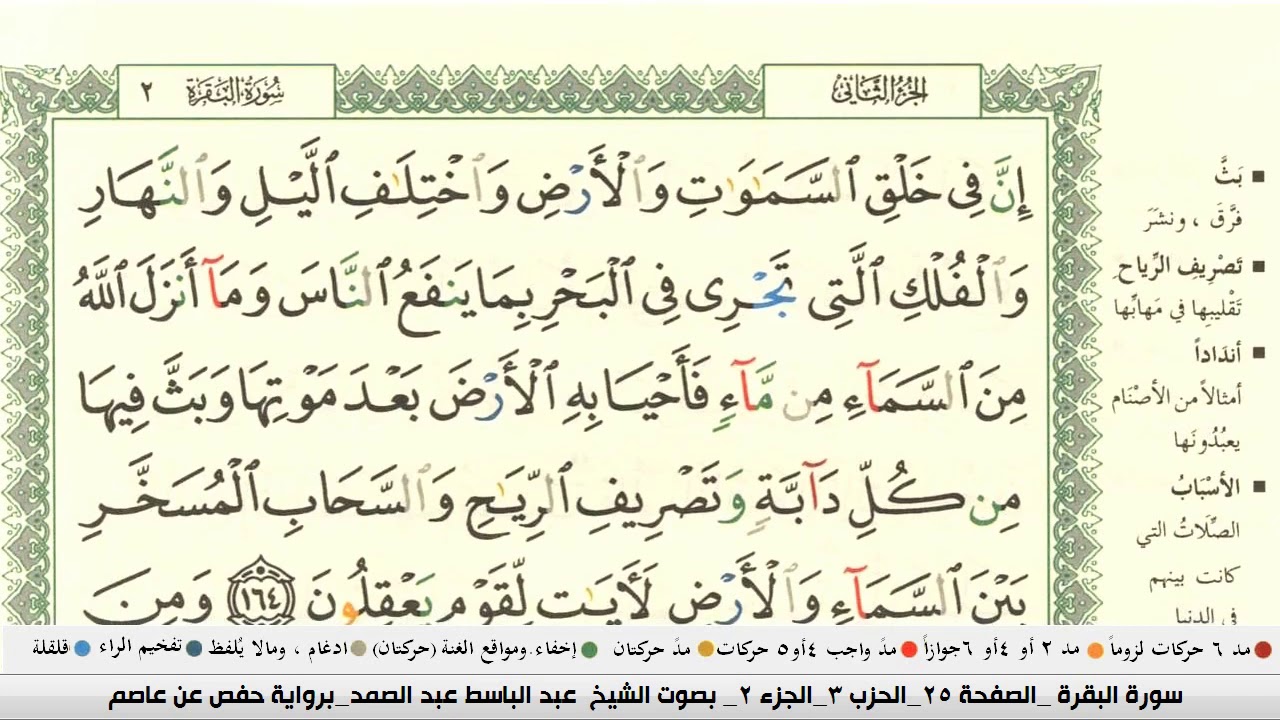 الجزء الثاني
سورة البقرة ٢
إِنَّ فِي خَلْقِ ٱلسَّمَٰوَٰتِ وَٱلْأَرْضِ وَٱخْتِلَٰفِ ٱلَّيْلِ وَٱلنَّهَارِ
وَٱلْفُلْكِ ٱلَّتِي تَجْرِي فِي ٱلْبَحْرِ بِمَا يَنفَعُ ٱلنَّاسَ وَمَآ أَنزَلَ ٱللَّهُ
مِنَ ٱلسَّمَآءِ مِن مَّآءٍ فَأَحْيَا بِهِ ٱلْأَرْضَ بَعْدَ مَوْتِهَا وَبَثَّ فِيهَا
مِن كُلِّ دَآبَّةٍ وَتَصْرِيفِ ٱلرِّيَٰحِ وَٱلسَّحَابِ ٱلْمُسَخَّرِ
بَيْنَ ٱلسَّمَآءِ وَٱلْأَرْضِ لَأَيَٰتٍ لِّقَوْمٍ يَعْقِلُونَ ١٦٤ وَمِنَ
بَثَّ
فرَّقَ ، ونشَرَ
تَصْرِيفِ الرِّياح
تَقْليبِها في مَهابِّها
أندَاداً
أمثالاً من الأصْنَام
يعبُدُونَها
الأسْبَابُ
الصِّلَاتُ التي
كانت بينهم
في الدنيا
مد ٦ حركات لزوماً مد ٢ أو ٤ أو ٦ جوازاً مدّ واجب ٤ أو ٥ حركات مدّ حركتان إخفاء. ومواقع الغنة (حركتان) ادغام ، ومالا يُلفظ تفخيم الراء قلقلة
سورة البقرة _الصفحة ٢٥_الحزب ٣_الجزء ٢_ بصوت الشيخ عبد الباسط عبد الصمد_برواية حفص عن عاصم